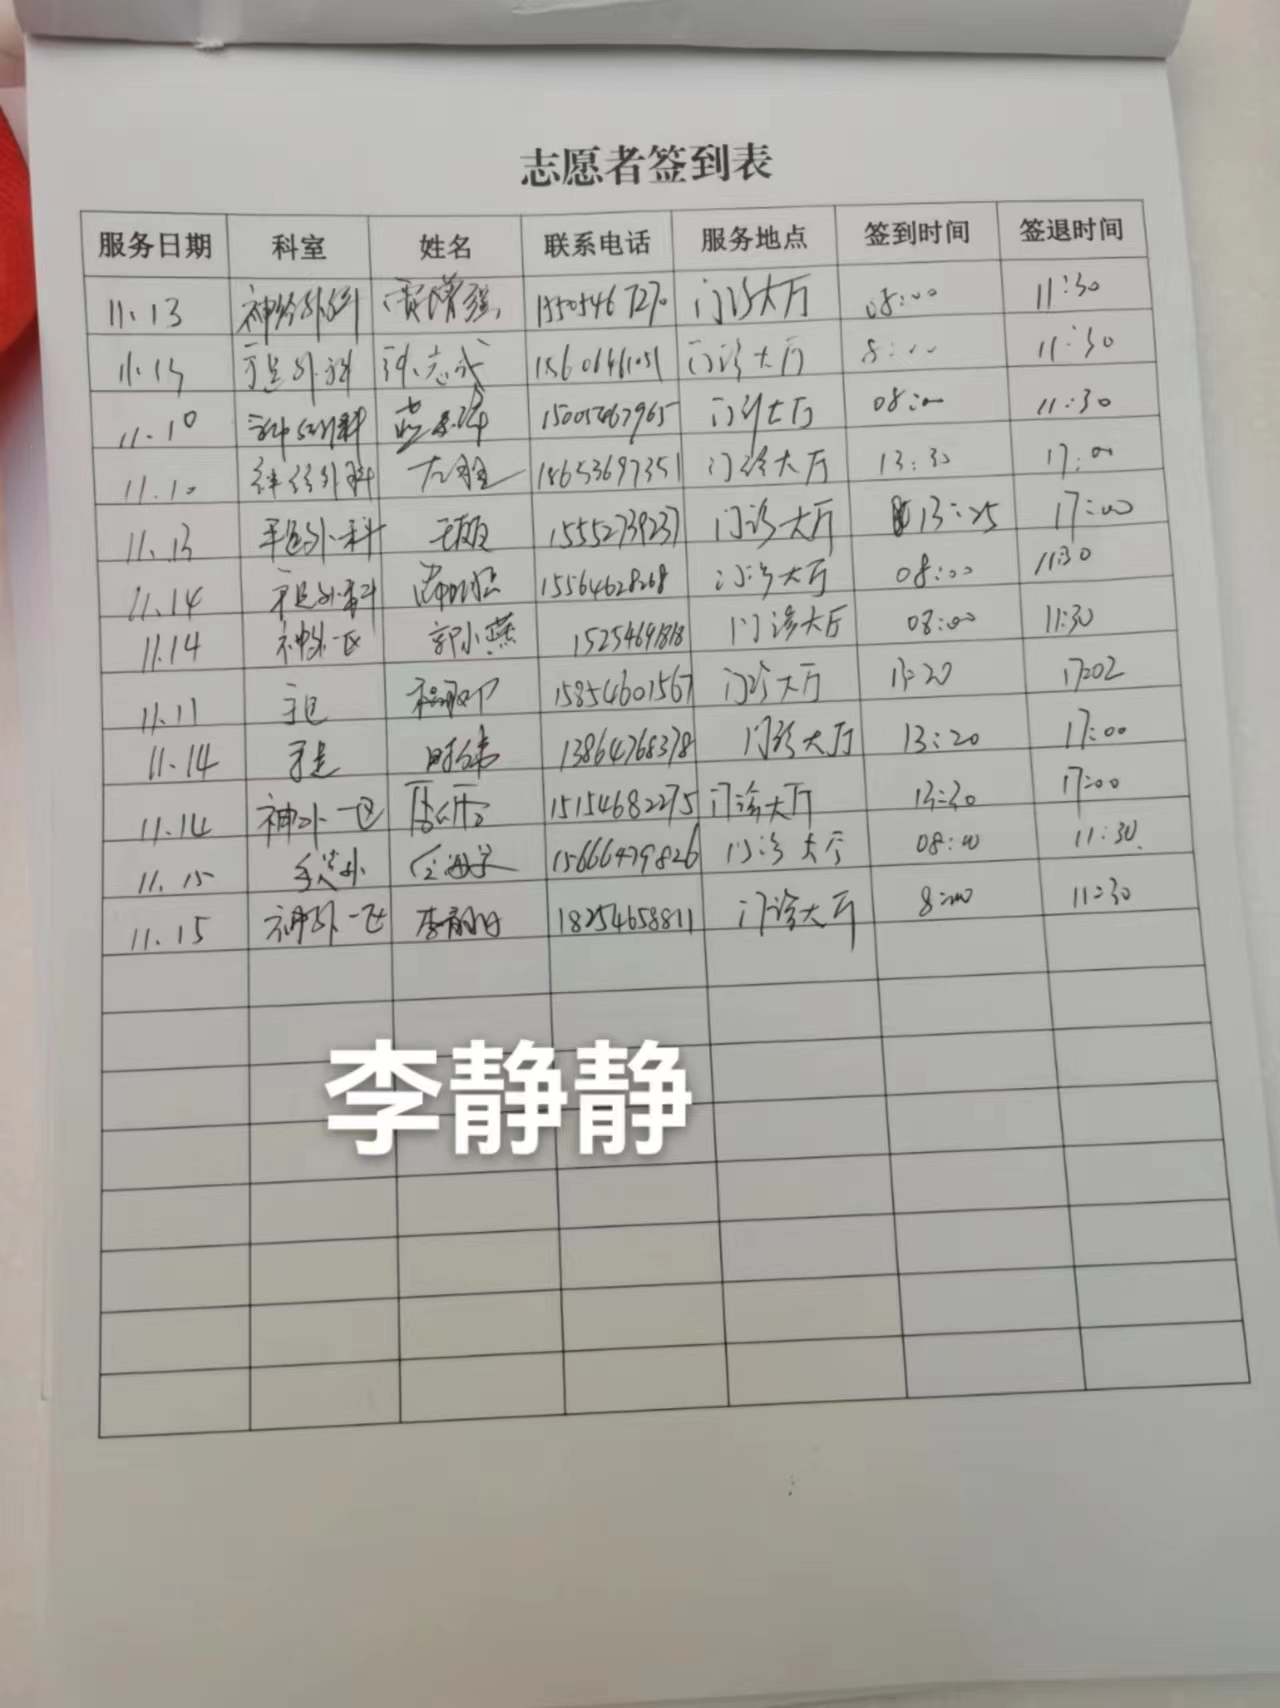 志愿者签到表
服务日期 科室 姓名 联系电话 服务地点 签到时间 签退时间
11.13 神经外科 贾增强 15505467270 门诊大厅 08:00 11:30
11.13 手足外科 志成 15606461051 门诊大厅 8:00 11:30
11.10 神经外科 门诊大厅 08:00 11:30
11.10 神经外科 18653697351 门诊大厅 13:30 17:00
11.13 手足外科 15552739237 门诊大厅 13:25 17:00
11.14 手足外科 15564628268 门诊大厅 08:00 11:30
11.14 神外一区 郭小燕 15254691818 门诊大厅 08:00 11:30
11.11 手足 15854601567 门诊大厅 13:20 17:02
11.14 手足 时伟 13864768378 门诊大厅 13:20 17:00
11.14 神外一区 15154682275 门诊大厅 13:30 17:00
11.15 手足外 15666479826 门诊大厅 08:00 11:30
11.15 神外一区 李静静 18254658811 门诊大厅 8:00 11:30
李静静